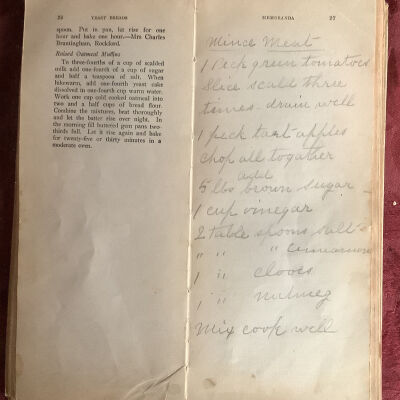 26 YEAST BREADS
spoon. Put in pan, let rise for one
hour and bake one hour.—Mrs Charles
Brantingham, Rockford.
Raised Oatmeal Muffins
To three-fourths of a cup of scalded
milk add one-fourth of a cup of sugar
and half a teaspoon of salt. When
lukewarm, add one-fourth yeast cake
dissolved in one-fourth cup warm water.
Work one cup cooked oatmeal into
two and a half cups of bread flour.
Combine the mixtures, beat thoroughly
and let the batter rise over night. In
the morning fill buttered gem pans two-
thirds full. Let it rise again and bake
for twenty-five or thirty minutes in a
moderate oven.
MEMORANDA 27
Mince Meat
1 Peck green tomatoes
Slice scald three
times - drain well
1 peck tart apples
chop all together
add
5 lbs brown sugar -
1 cup vinegar
2 table spoons salt
" " " cinnamon
1 " cloves
1 " nutmeg
Mix cook well